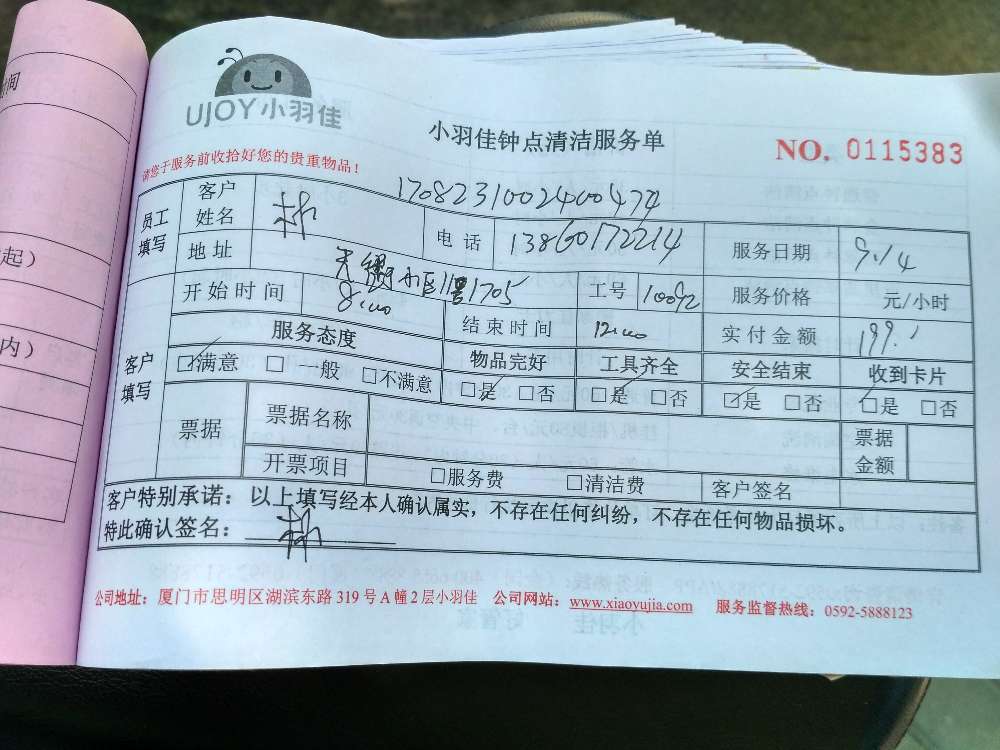 UJOY小羽佳
小羽佳钟点清洁服务单
NO. 0115383
请您于服务前收拾好您的贵重物品！
1708231002400474
员工填写 客户姓名 林 电话 13860172214 服务日期 9.14
地址 小区11号1705 工号 10092 服务价格 元/小时
开始时间 8:00 结束时间 12:00 实付金额 199.
客户填写 服务态度 物品完好 工具齐全 安全结束 收到卡片
□满意 □一般 □不满意 □是 □否 □是 □否 □是 □否 □是 □否
票据 票据名称 票据金额
开票项目 □服务费 □清洁费 客户签名
客户特别承诺：以上填写经本人确认属实，不存在任何纠纷，不存在任何物品损坏。
特此确认签名： 林
公司地址：厦门市思明区湖滨东路319号A幢2层小羽佳 公司网站：www.xiaoyujia.com 服务监督热线：0592-5888123
起）
内）